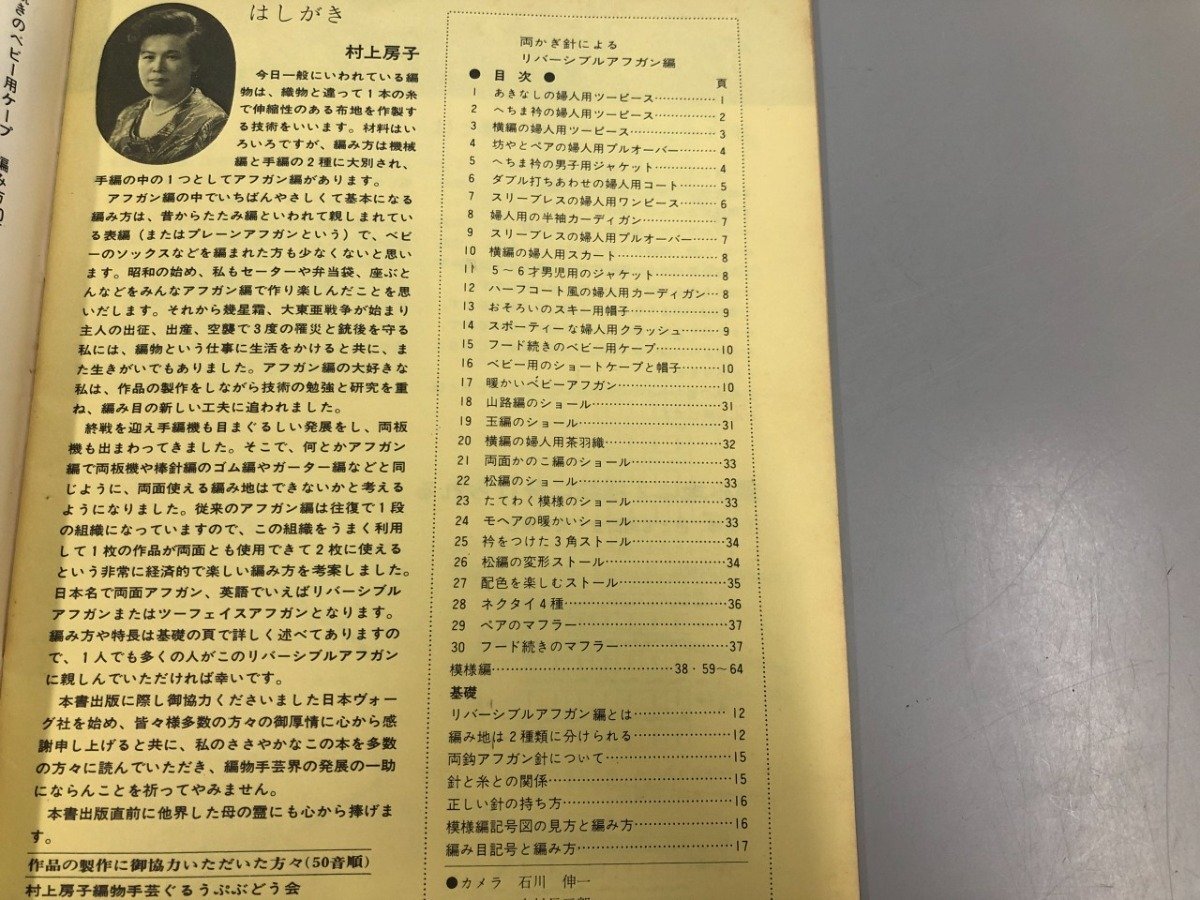 きのベビー用ケープ 編み方
はしがき
村上房子
今日一般にいわれている編
物は、織物と違って1本の糸
で伸縮性のある布地を作製す
る技術をいいます。材料はい
ろいろですが、編み方は機械
編と手編の2種に大別され、
手編の中の1つとしてアフガン編があります。
アフガン編の中でいちばんやさしくて基本になる
編み方は、昔からたたみ編といわれて親しまれてい
る表編(またはプレーンアフガンという)で、ベビ
ーのソックスなどを編まれた方も少なくないと思い
ます。昭和の始め、私もセーターや弁当袋、座ぶと
んなどをみんなアフガン編で作り楽しんだことを思
いだします。それから幾星霜、大東亜戦争が始まり
主人の出征、出産、空襲で3度の罹災と銃後を守る
私には、編物という仕事に生活をかけると共に、ま
た生きがいでもありました。アフガン編の大好きな
私は、作品の製作をしながら技術の勉強と研究を重
ね、編み目の新しい工夫に追われました。
終戦を迎え手編機も目まぐるしい発展をし、両板
機も出まわってきました。そこで、何とかアフガン
編で両板機や棒針編のゴム編やガーター編などと同
じように、両面使える編み地はできないかと考える
ようになりました。従来のアフガン編は往復で1段
の組織になっていますので、この組織をうまく利用
して1枚の作品が両面とも使用できて2枚に使える
という非常に経済的で楽しい編み方を考案しました。
日本名で両面アフガン、英語でいえばリバーシブル
アフガンまたはツーフェイスアフガンとなります。
編み方や特長は基礎の頁で詳しく述べてありますの
で、1人でも多くの人がこのリバーシブルアフガン
に親しんでいただければ幸いです。
本書出版に際し御協力くださいました日本ヴォー
グ社を始め、皆々様多数の方々の御厚情に心から感
謝申し上げると共に、私のささやかなこの本を多数
の方々に読んでいただき、編物手芸界の発展の一助
にならんことを祈ってやみません。
本書出版直前に他界した母の霊にも心から捧げま
す。
作品の製作に御協力いただいた方々(50音順)
村上房子編物手芸ぐるうぷぶどう会
両かぎ針による
リバーシブルアフガン編
●目次● 頁
1 あきなしの婦人用ツーピース……………1
2 へちま衿の婦人用ツーピース……………2
3 横編の婦人用ツーピース……………3
4 坊やとペアの婦人用プルオーバー……………4
5 へちま衿の男子用ジャケット……………4
6 ダブル打ちあわせの婦人用コート……………5
7 スリーブレスの婦人用ワンピース……………6
8 婦人用の半袖カーディガン……………7
9 スリーブレスの婦人用プルオーバー……………7
10 横編の婦人用スカート……………8
11 5~6才男児用のジャケット……………8
12 ハーフコート風の婦人用カーディガン…8
13 おそろいのスキー用帽子……………9
14 スポーティーな婦人用クラッシュ……………9
15 フード続きのベビー用ケープ……………10
16 ベビー用のショートケープと帽子……………10
17 暖かいベビーアフガン……………10
18 山路編のショール……………31
19 玉編のショール……………31
20 横編の婦人用茶羽織……………32
21 両面かのこ編のショール……………33
22 松編のショール……………33
23 たてわく模様のショール……………33
24 モヘアの暖かいショール……………33
25 衿をつけた3角ストール……………34
26 松編の変形ストール……………34
27 配色を楽しむストール……………35
28 ネクタイ4種……………36
29 ペアのマフラー……………37
30 フード続きのマフラー……………37
模様編……………38・59~64
基礎
リバーシブルアフガン編とは……………12
編み地は2種類に分けられる……………12
両鈎アフガン針について……………15
針と糸との関係……………15
正しい針の持ち方……………16
模様編記号図の見方と編み方……………16
編み目記号と編み方……………17
●カメラ 石川 伸一